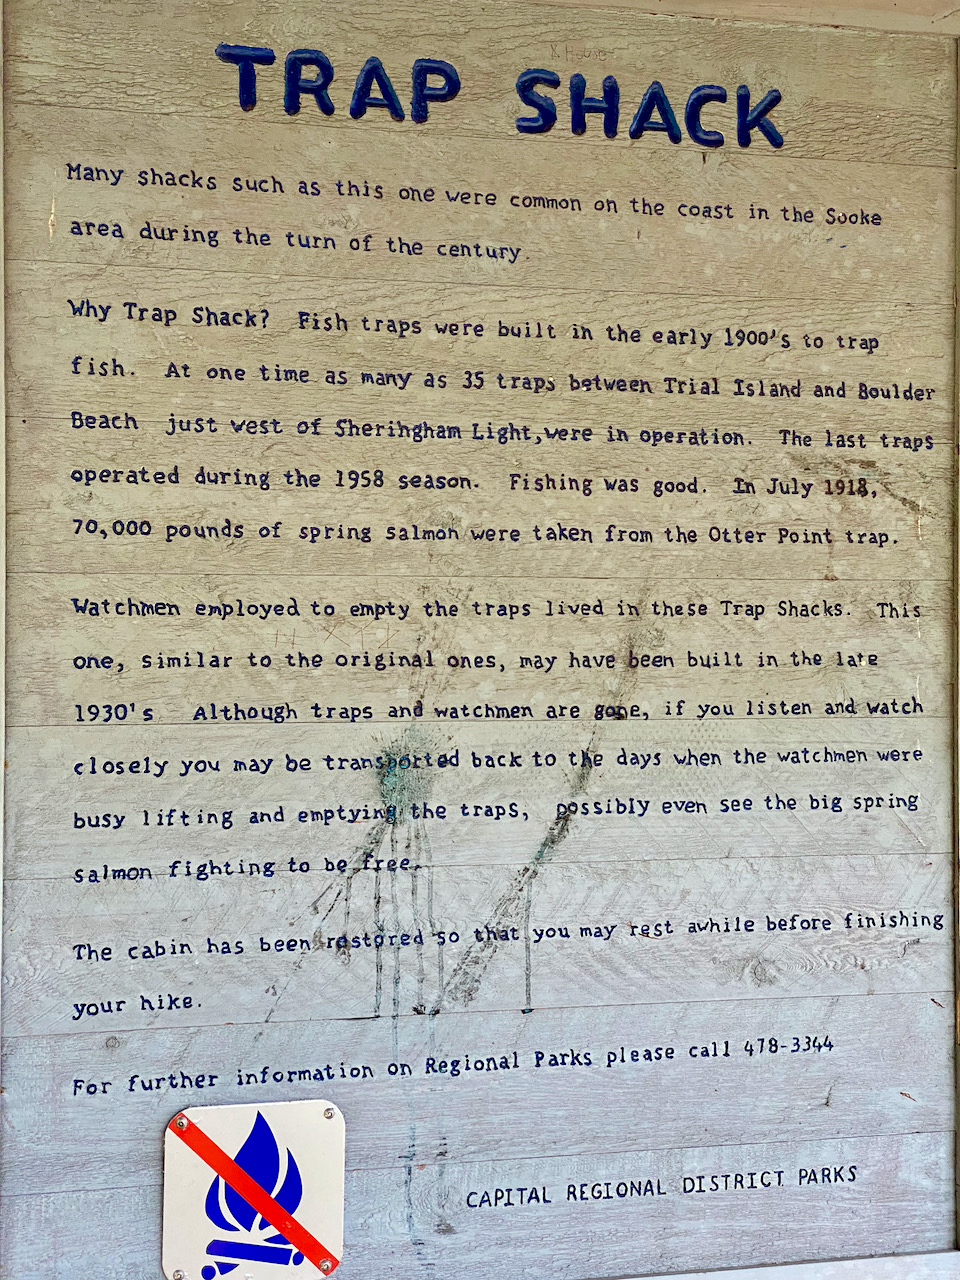 TRAP SHACK
Many shacks such as this one were common on the coast in the Sooke
area during the turn of the century.
Why Trap Shack? Fish traps were built in the early 1900's to trap
fish. At one time as many as 35 traps between Trial Island and Boulder
Beach just west of Sheringham Light, were in operation. The last traps
operated during the 1958 season. Fishing was good. In July 1918,
70,000 pounds of spring salmon were taken from the Otter Point trap.
Watchmen employed to empty the traps lived in these Trap Shacks. This
one, similar to the original ones, may have been built in the late
1930's Although traps and watchmen are gone, if you listen and watch
closely you may be transported back to the days when the watchmen were
busy lifting and emptying the traps, possibly even see the big spring
salmon fighting to be free.
The cabin has been restored so that you may rest awhile before finishing
your hike.
For further information on Regional Parks please call 478-3344
CAPITAL REGIONAL DISTRICT PARKS